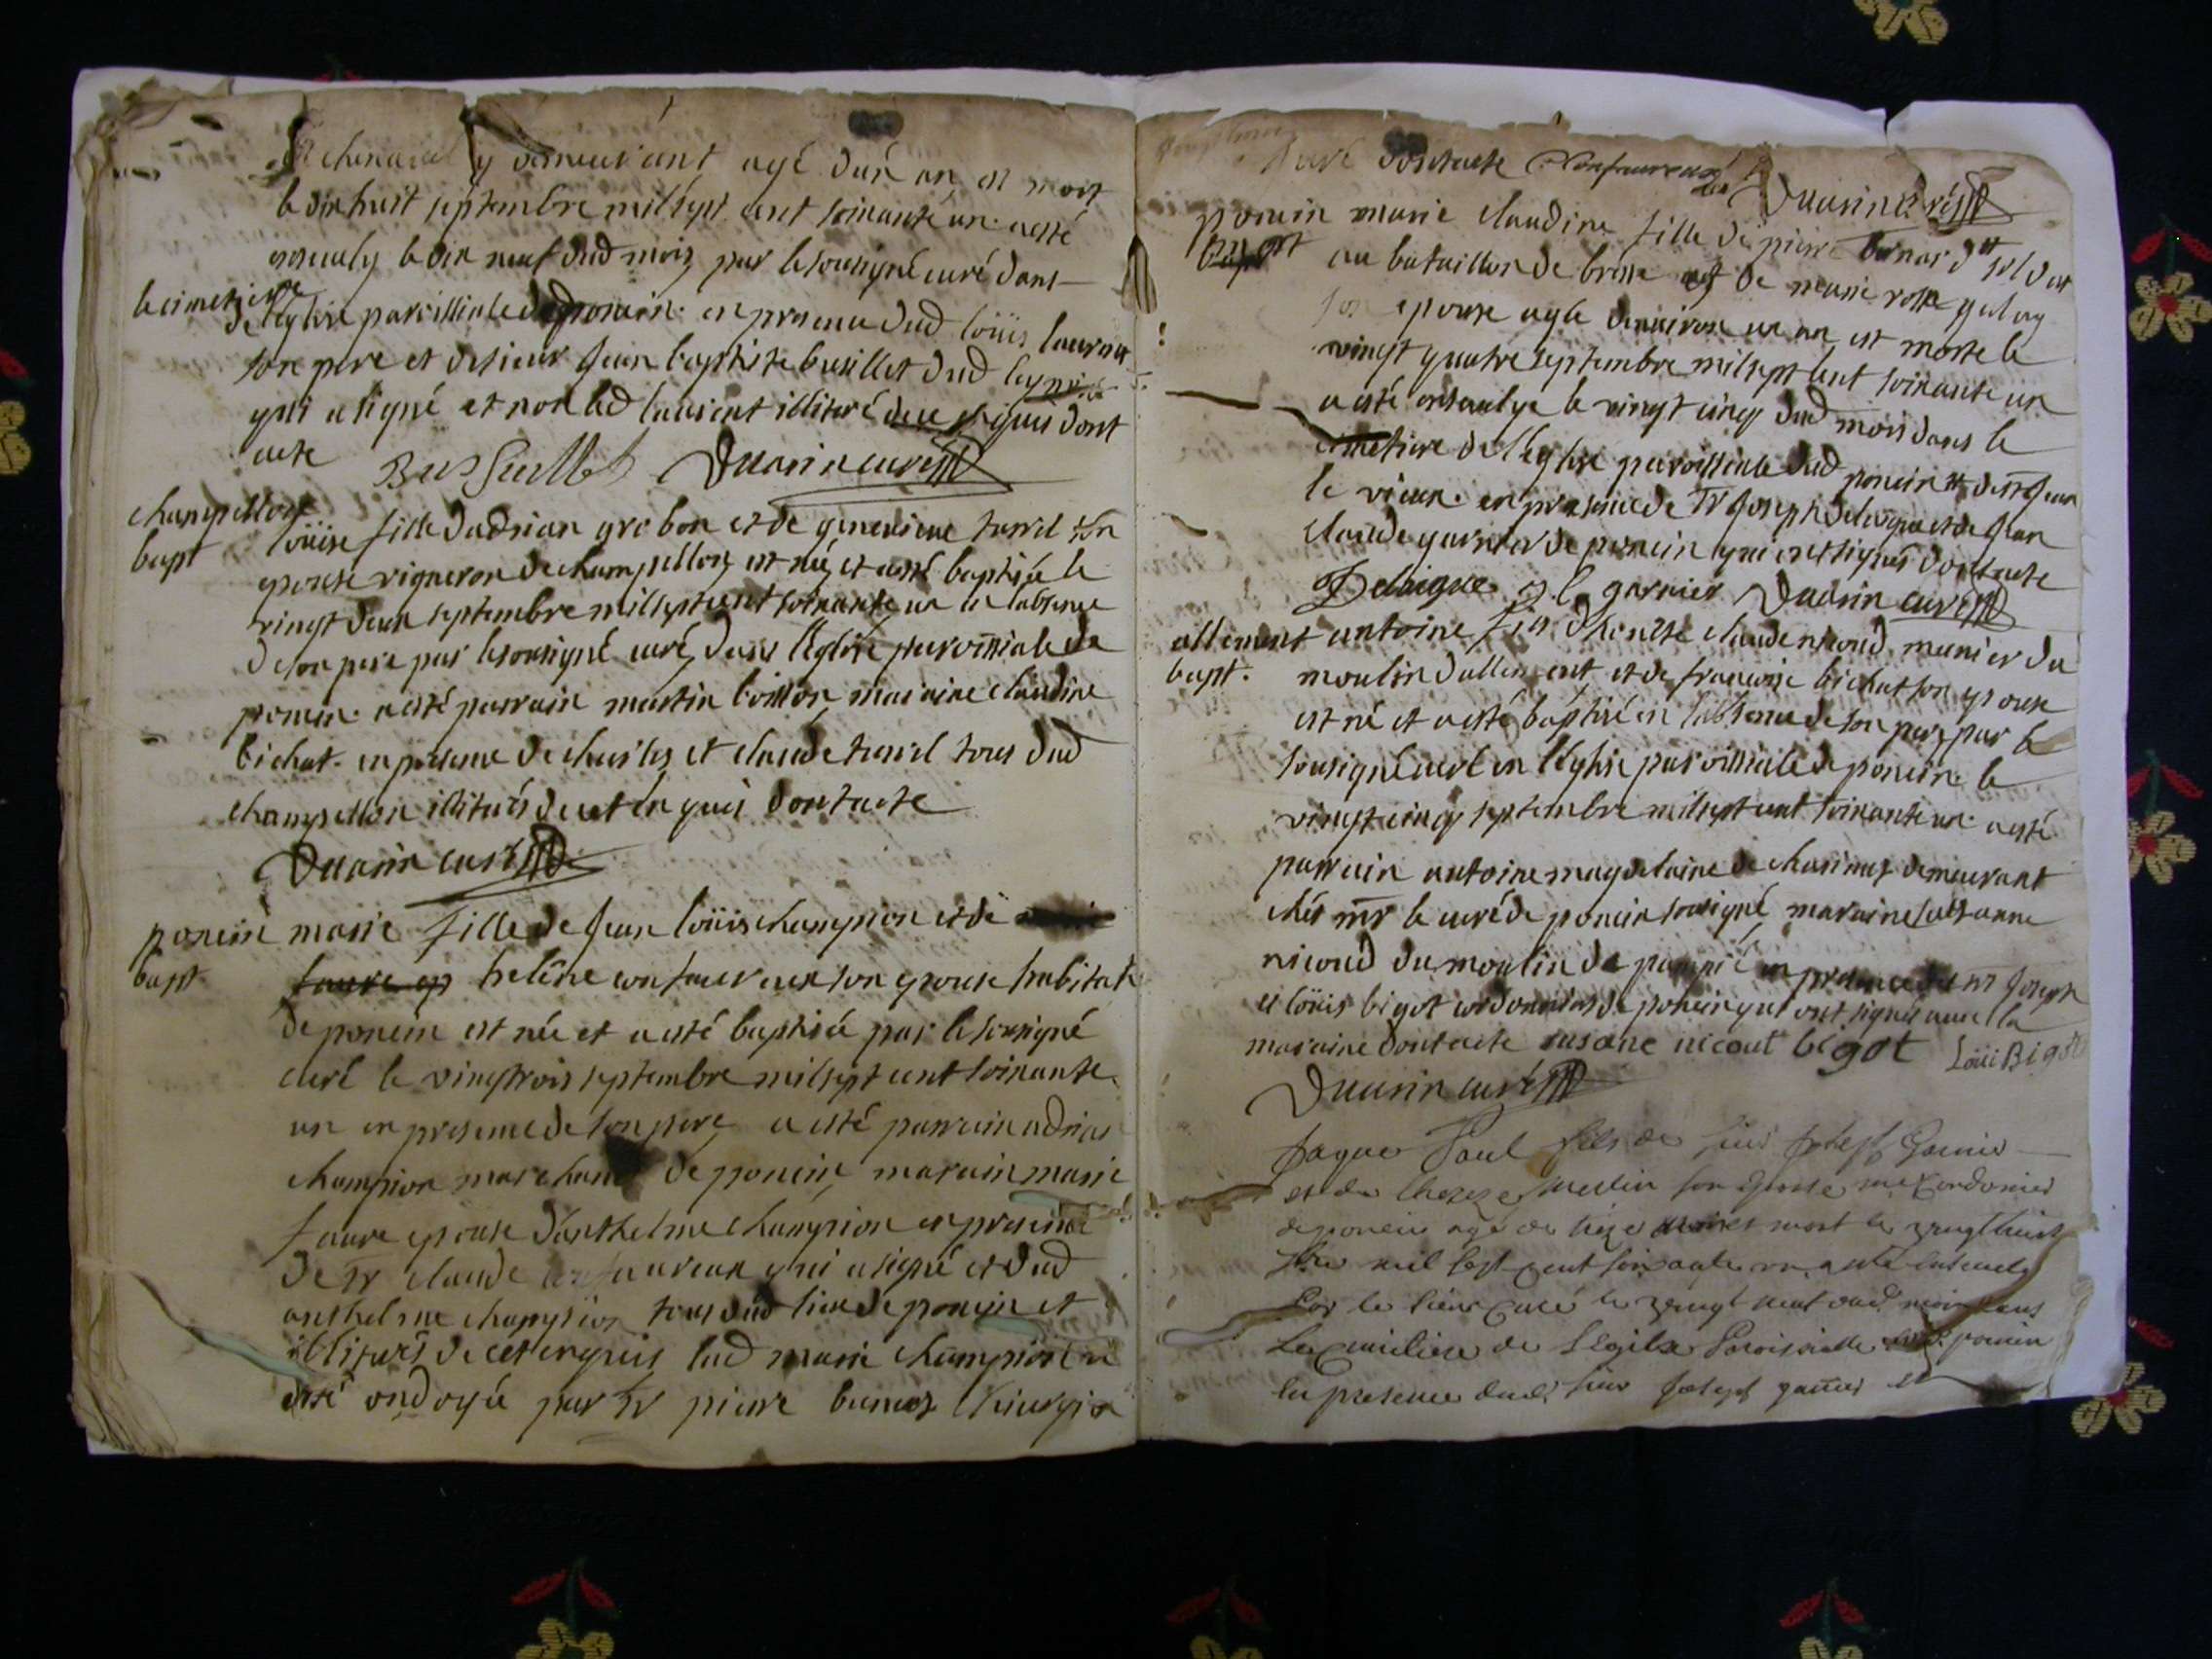 y demeurant agé dun an est mort
le dix huit septembre mil sept cent soixante un a esté
le dix neuf dud mois par le sousigné curé dans
le cimetiere
de l'eglise paroissiale de poncin en presence dud loüis laurent
son pere et de sieur jean baptiste busillet dud
qui a signé et non led laurent illiteré de ce enquis dont
acte Bussillet Duarin curé
champellon
bapt
loüise fille dadrian grobon et de genevieve tur­ril son
epouse vigneron de champellon est née et a esté baptisée le
vingt deux septembre mil sept cent soixante un en labsence
de son pere par le sousigné curé dans l'eglise paroissiale de
poncin a esté parrain martin maraine claudine
bichat en presence de charles et claude tous dud
champellon illiterés de cet enquis dont acte
Duarin curé
poncin
bapt
marie fille de jean loüis champion et de
helêne confavreux son epouse habitate
de poncin est née et a esté baptisée par le sousigné
curé le vingt trois septembre mil sept cent soixante
un en presence de son pere a esté parrain adrian
champion marchand de poncin marain marie
favre epouse d'anthelme champion en presence
de sr claude confavreux qui a signé et dud
anthelme champion tous dud lieu de poncin et
illiterés de cet enquis lad marie champion a
esté ondoyée par sr pierre chirurgien
juré dont acte Confavreux Duarin curé
poncin
marie claudine fille de pierre bernard soldat
au bataillon de bresse et de marie rose
son epouse agée denviron un an est morte le
vingt quatre septembre mil sept cent soixante un
a esté ensevelye le vingt cinq dud mois dans le
cimetiere de l'eglise paroissiale dud poncin
le vieux en presence de sr joseph delaigue et de jean
claude garnier de poncin qui ont signés dont acte
Delaigue j c garnier Duarin curé
allement
bapt.
antoine fils d'honeste claude nicoud munier du
moulin dallement et de francoise bichat son epouse
est né et a esté baptisé en labsence de son pere par le
sousigné curé en l'eglise paroissiale de poncin le
vingt cinq septembre mil sept cent soixante un a esté
parrain antoine magdelaine de charinaz demeurant
chés mr le curé de poncin sousigné maraine susanne
nicoud du moulin de en presence de sr joseph
et loüis bigot cordonniers de poncin qui ont signés avec la
maraine dont acte susane nicout bigot Loüi Bigot
Duarin curé
Jaque Paul fils de sieur Joseph
et de thereze son epouse me Cordonier
de poncin agé de treze mois est mort le vingt huit
mil sept cent soixante un a esté enseveli
par le sieur Curé le vingt neuf dud mois dans
Le cimetiere de l'Eglise Paroissialle de poncin
en presence dud sieur Joseph et